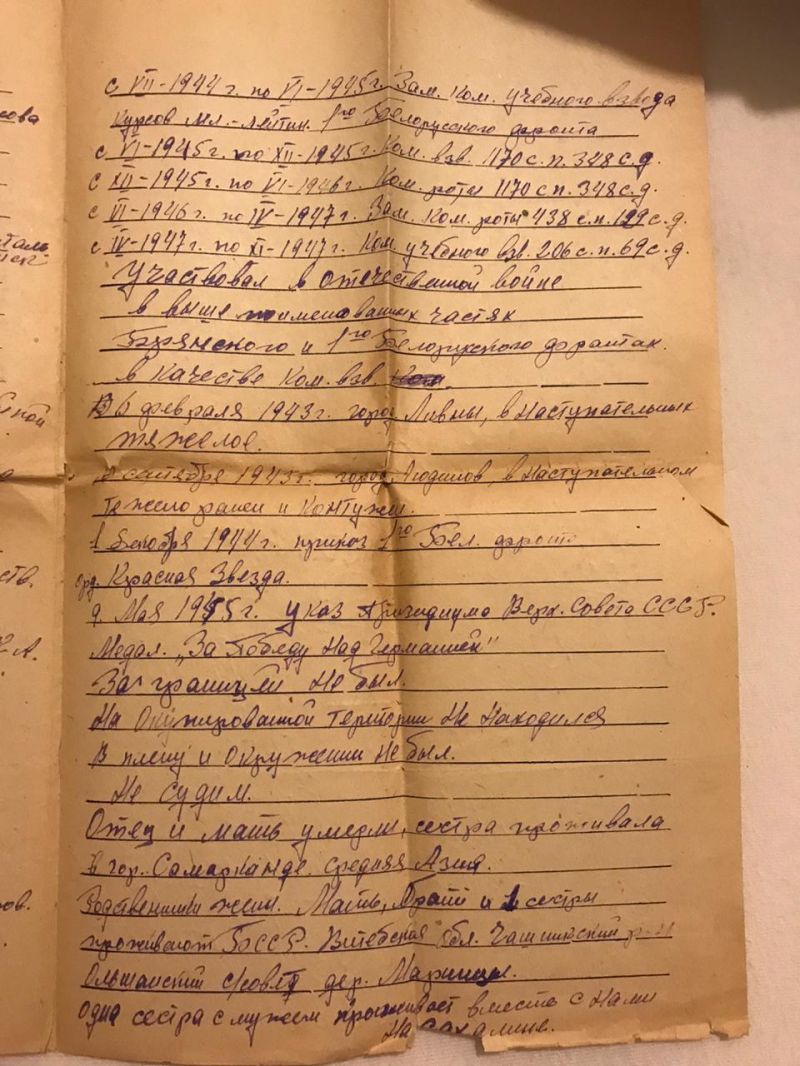 сова
таль
ной
ств.
А.
ов.
с VII-1944 г. по VI-1945 г. Зам. Ком. учебного взвода
Курсов мл.-лейтин. 1го Белорусского фронта
с VI-1945 г. по XII-1945 г. Ком. взв. 1170 с.п. 348 с.д.
с XII-1945 г. по VI-1946 г. Ком. роты 1170 с п. 348 с.д.
с VI-1946 г. по IV-1947 г. Зам. Ком. роты 438 с.п. 129 с.д.
с IV-1947 г. по XI-1947 г. Ком. учебного взв. 206 с.п. 69 с.д.
Участвовал в Отечественной войне
в выше поименованных частях
Брянского и 1го Белорусского фронтах.
в качестве Ком. взв.
6 февраля 1943 г. город Ливны, в Наступательных
тяжелое.
сентября 1943 г. город Людинов, в Наступательном
тежело ранен и Контужен.
1 декабря 1944 г. приказ 1го Бел. фронта
орд. Красная Звезда.
9. Мая 1945 г. Указ Президиума Верх. Совета СССР.
Медал. „За Победу Над Германией"
За границей не был.
На Окупированной Територии Не Находился
В плену и Окружении не был.
Не судим.
Отец и мать умерли, сестра проживала
в гор. Самарканде. средняя Азия.
Родственники жены. Мать, брат и 1 сестры
проживают БССР. Витебская обл. Чашникский р-н
Ольшанский с/совет дер.
Одна сестра с мужем проживает вместе с Нами
На Сахалине.